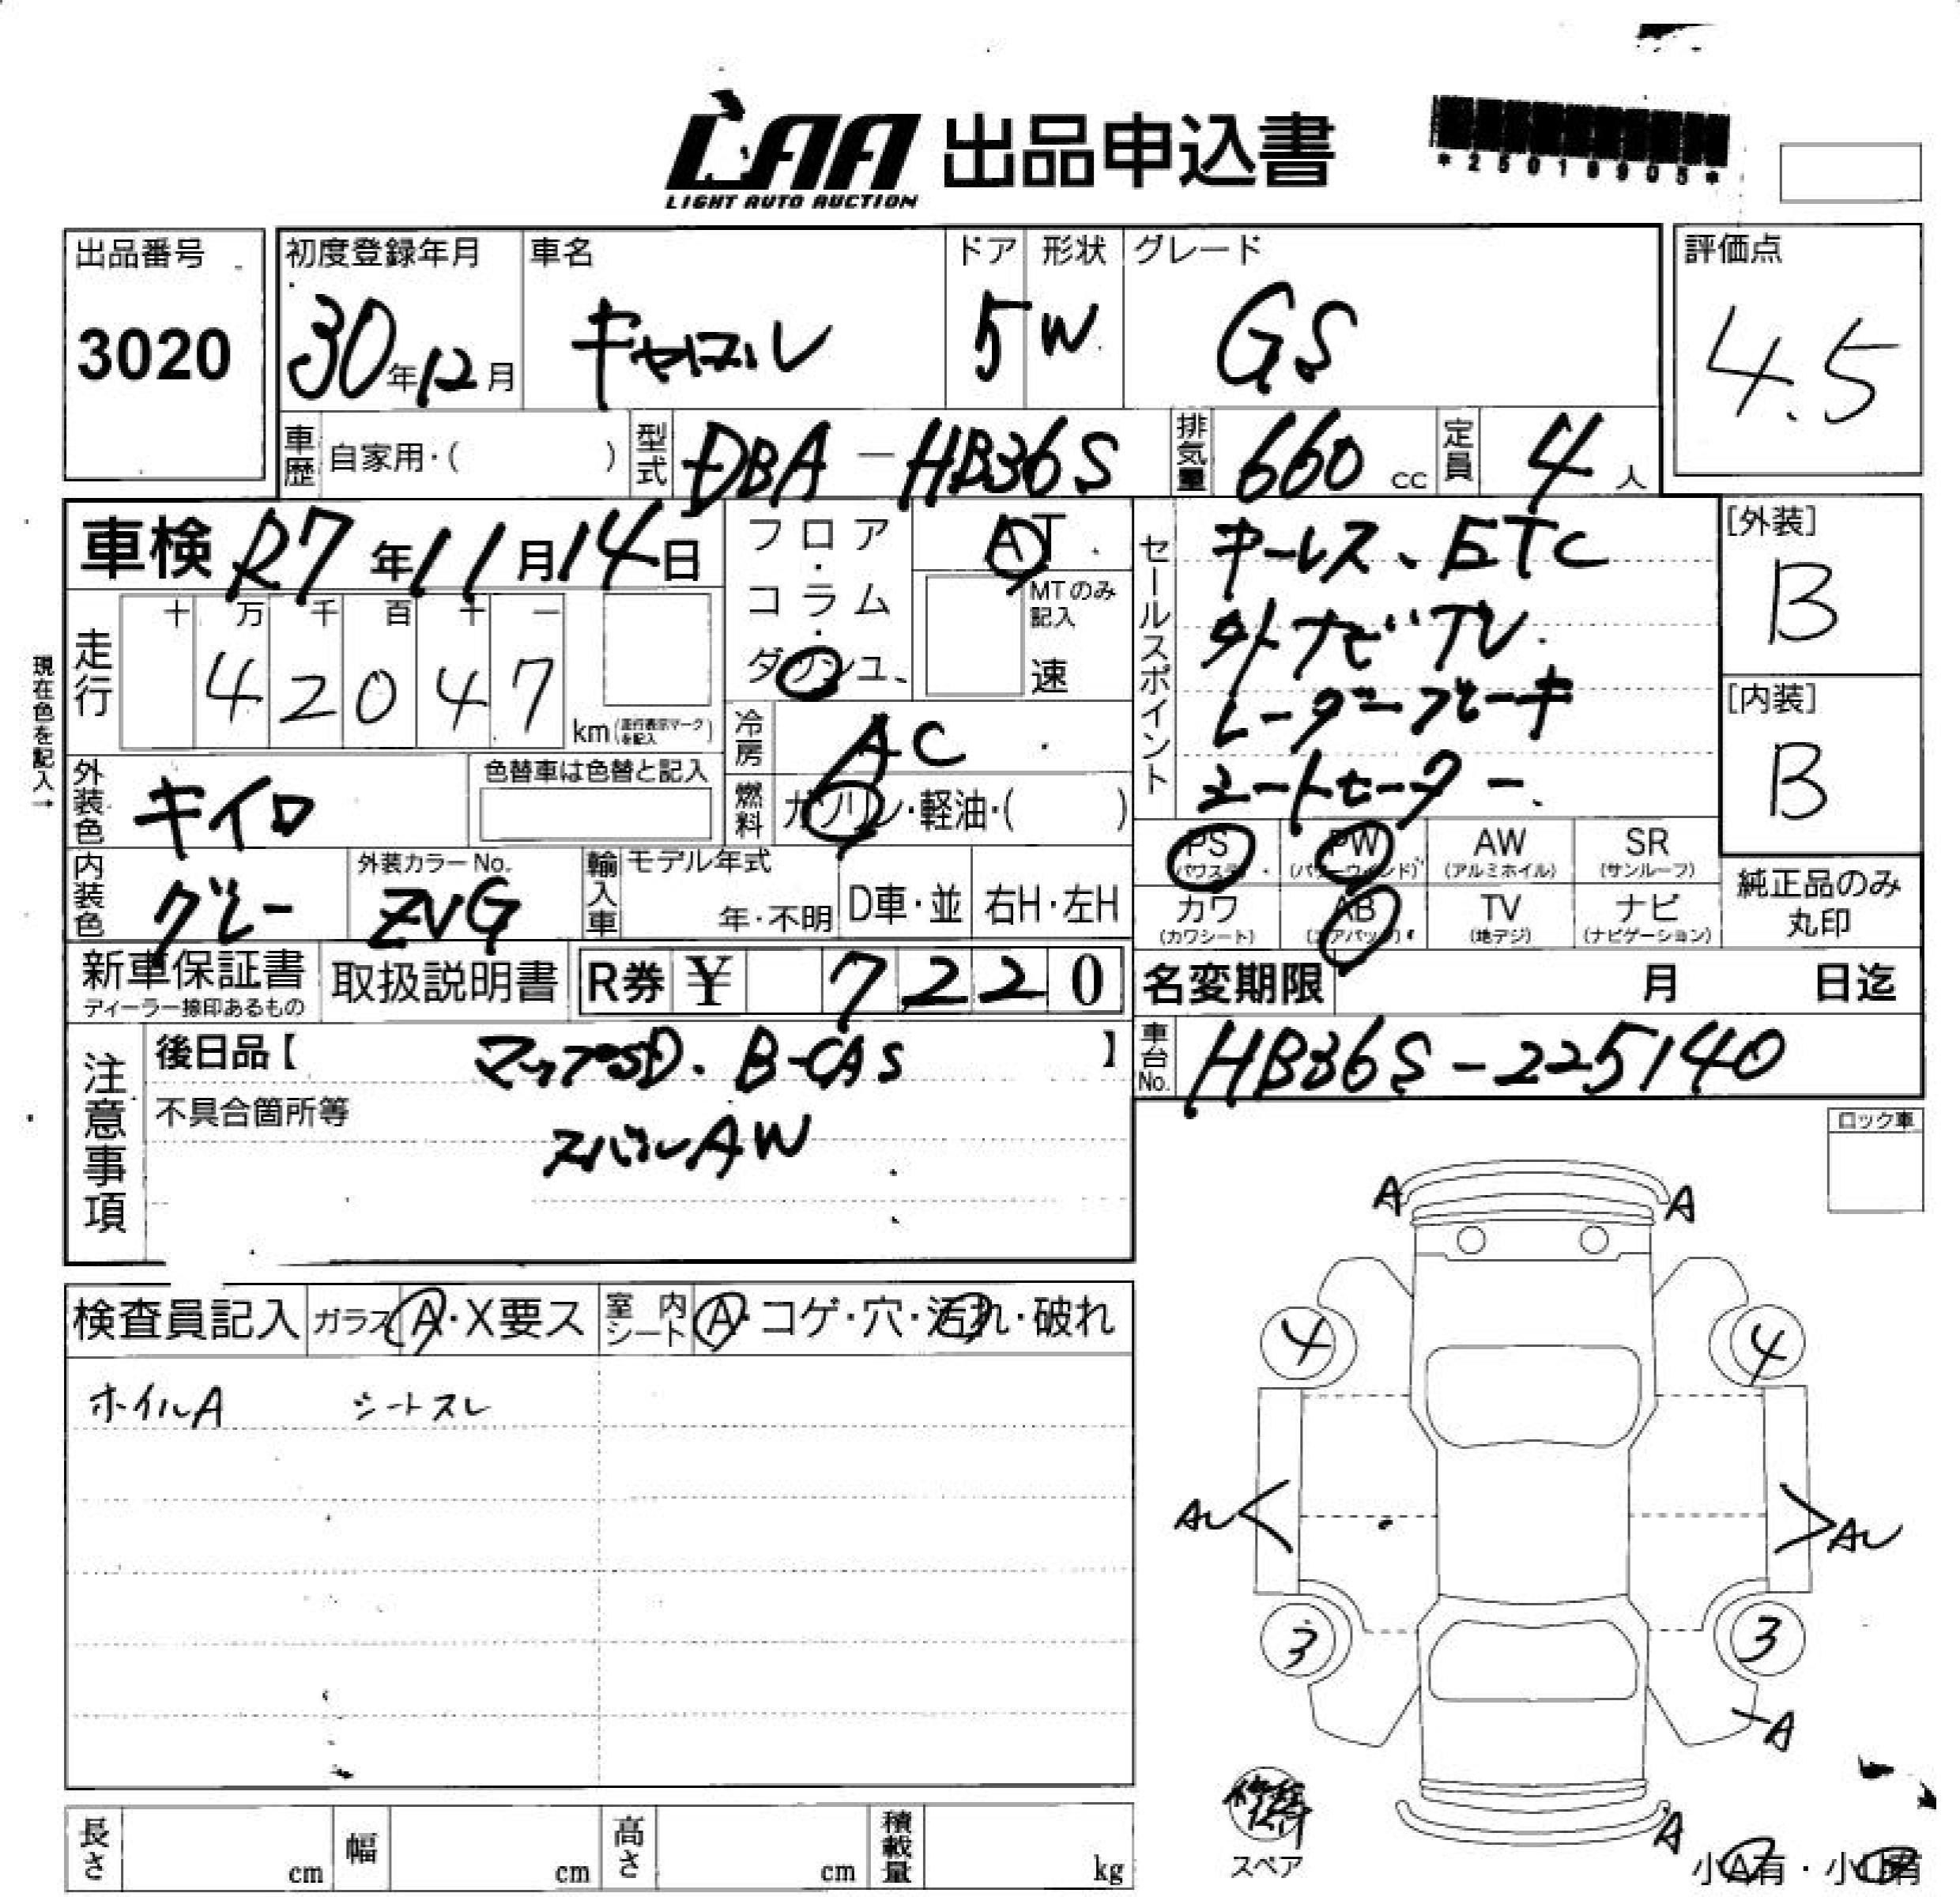 LAA 出品申込書
LIGHT AUTO AUCTION
出品番号
3020
初度登録年月
30年12月
車名
キャロル
ドア
5
形状
W
グレード
GS
評価点
4.5
車歴 自家用・( )
型式 DBA-HB36S
排気量 660 cc
定員 4 人
車検 R7年11月14日
現在色を記入→
走行
十 万 千 百 十 一
4 2 0 4 7
km (走行表示マークを記入)
フロア・コラム・ダッシュ
AT
MTのみ記入
速
冷房 AC
燃料 ガソリン・軽油・( )
外装色 キイロ
色替車は色替と記入
内装色 グレー
外装カラーNo.
ZVG
輸入車
モデル年式
年・不明
D車・並
右H・左H
セールスポイント
キーレス、ETC
外ナビTV
レーダーブレーキ
シートヒーター
[外装]
B
[内装]
B
PS
(パワステ)
PW
(パワーウインド)
AW
(アルミホイル)
SR
(サンルーフ)
カワ
(カワシート)
AB
(エアバッグ)
TV
(地デジ)
ナビ
(ナビゲーション)
純正品のみ
丸印
新車保証書
ディーラー捺印あるもの
取扱説明書
R券 ¥ 7 2 2 0
名変期限 月 日迄
車台No. HB36S-225140
注意事項
後日品【マップSD. B-CAS】
不具合箇所等
スバルAW
ロック車
検査員記入
ガラス A・X要ス
室内シート A・コゲ・穴・汚れ・破れ
ホイルA シートスレ
A A
4 4
AU AU
3 3
A
A
スペア
小A有・小U有
長さ cm
幅 cm
高さ cm
積載量 kg